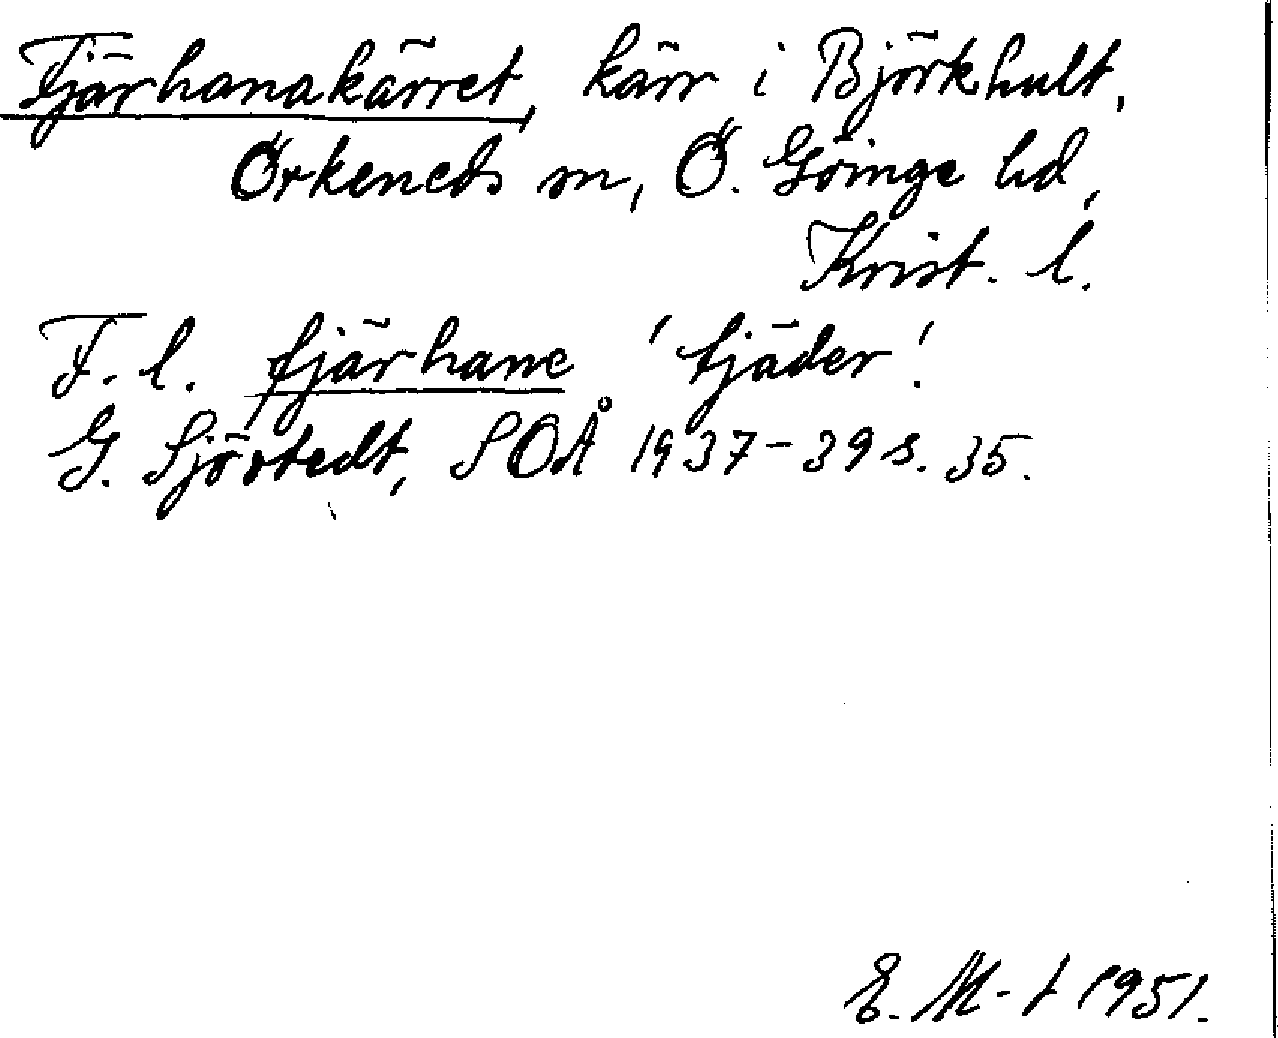 Fjärhanakärret, kärr i Björkhult,
Örkeneds sn, Ö. Göinge hd,
Krist. l.
F. l. fjärhane 'tjäder'.
G. Sjöstedt, SOÅ 1937-39 s. 35.
E. M-t 1951.